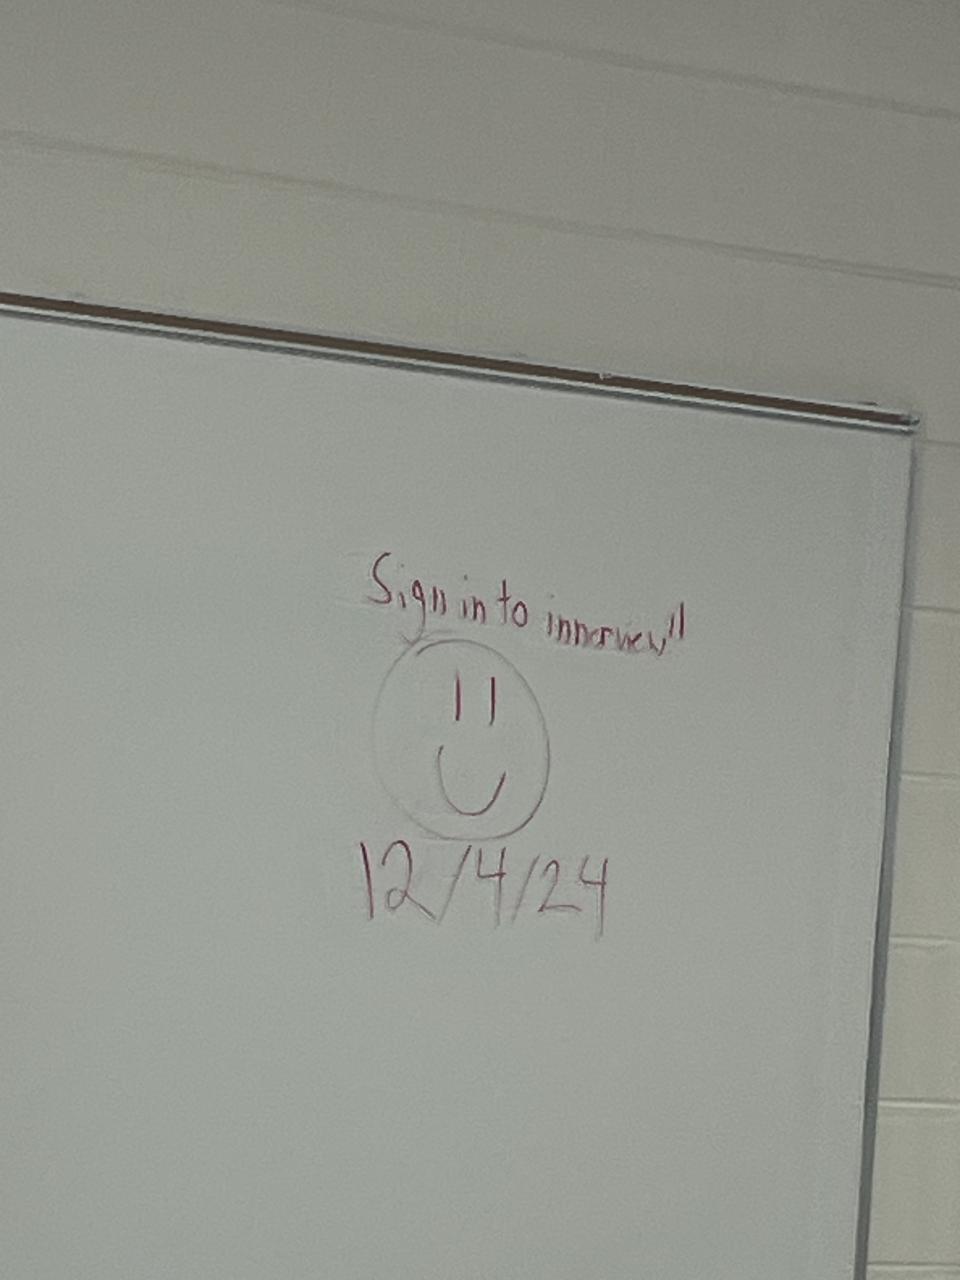 Sign in to innerview"
12/4/24